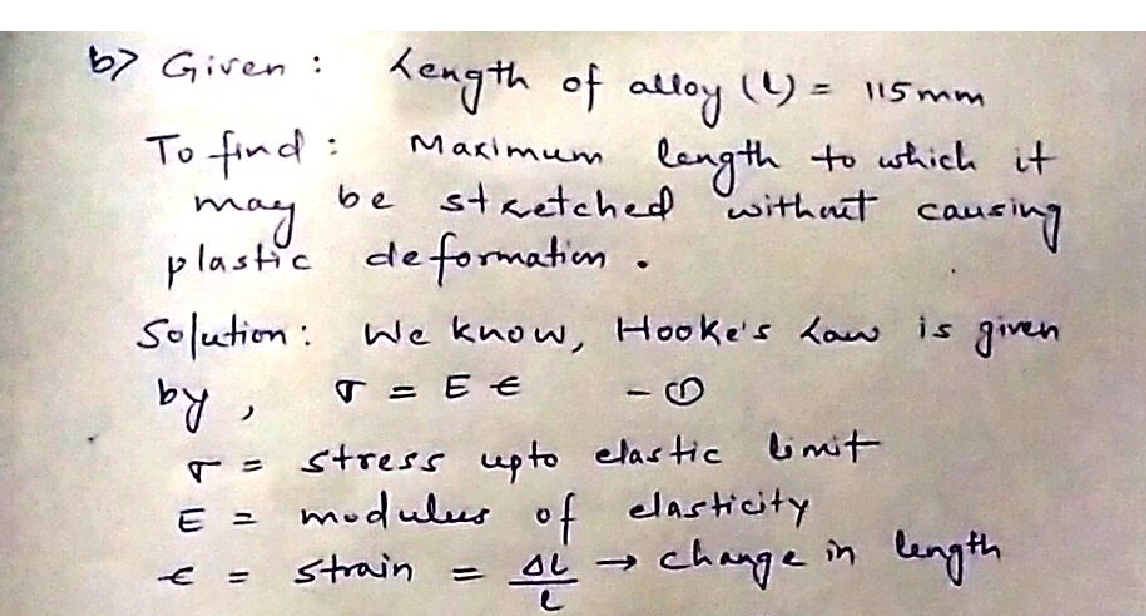 b) Given : Length of alloy (l) = 115 mm
To find : Maximum length to which it
may be stretched without causing
plastic deformation .
Solution : We know, Hooke's Law is given
by , σ = E ϵ - ①
σ = stress upto elastic limit
E = modulus of elasticity
ϵ = strain = Δl/l → change in length